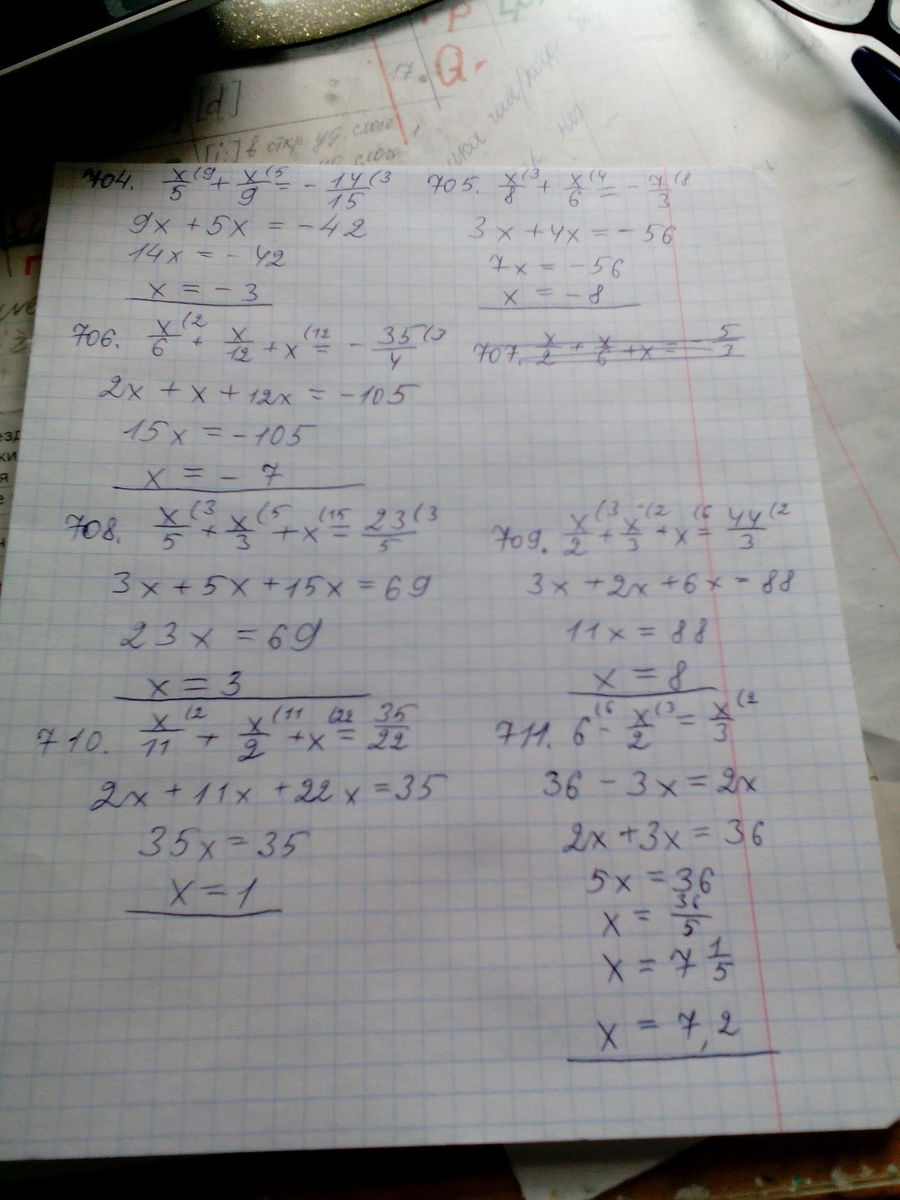 P
17.
Q.
[d]
[i:] в откр уд. слоге
704. x/5 (9 + x/9 (5 = - 14/15 (3
9x + 5x = -42
14x = -42
x = -3
705. x/8 (3 + x/6 (4 = - 7/3 (8
3x + 4x = -56
7x = -56
x = -8
706. x/6 (2 + x/12 + x (12 = - 35/4 (3
2x + x + 12x = -105
15x = -105
x = -7
707. x/2 + x/6 + x = - 5/3
708. x/5 (3 + x/3 (5 + x (15 = 23/5 (3
3x + 5x + 15x = 69
23x = 69
x = 3
709. x/2 (3 + x/3 (2 + x (6 = 44/3 (2
3x + 2x + 6x = 88
11x = 88
x = 8
710. x/11 (2 + x/2 (11 + x (22 = 35/22
2x + 11x + 22x = 35
35x = 35
x = 1
711. 6 (6 - x/2 (3 = x/3 (2
36 - 3x = 2x
2x + 3x = 36
5x = 36
x = 36/5
x = 7 1/5
x = 7,2